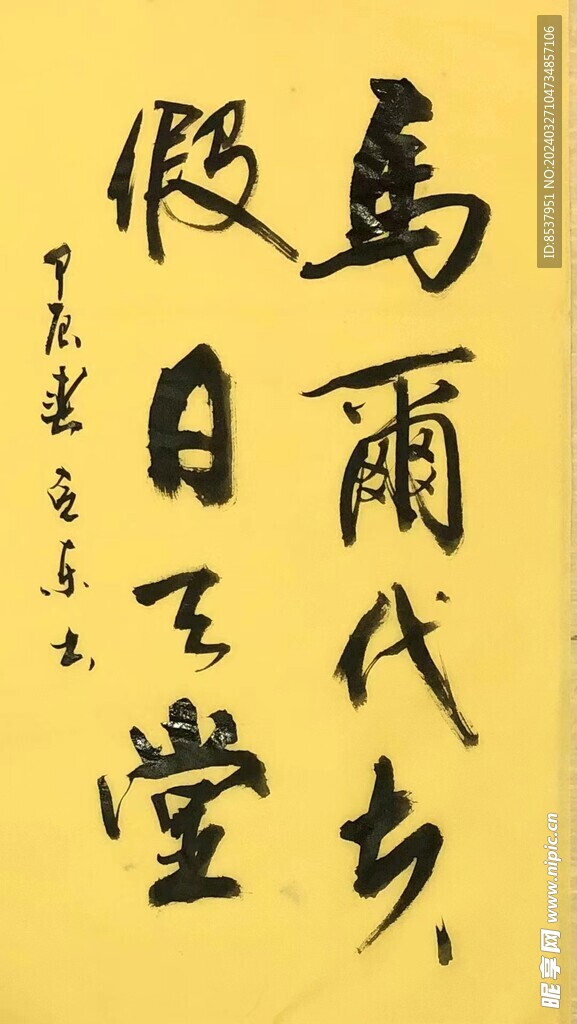 馬爾代夫
假日天堂
甲辰春
ID:8537951 NO:20240327104734857106
昵享网 www.nipic.cn